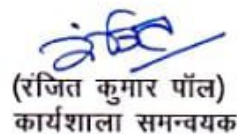 (रंजित कुमार पॉल)
कार्यशाला समन्वयक